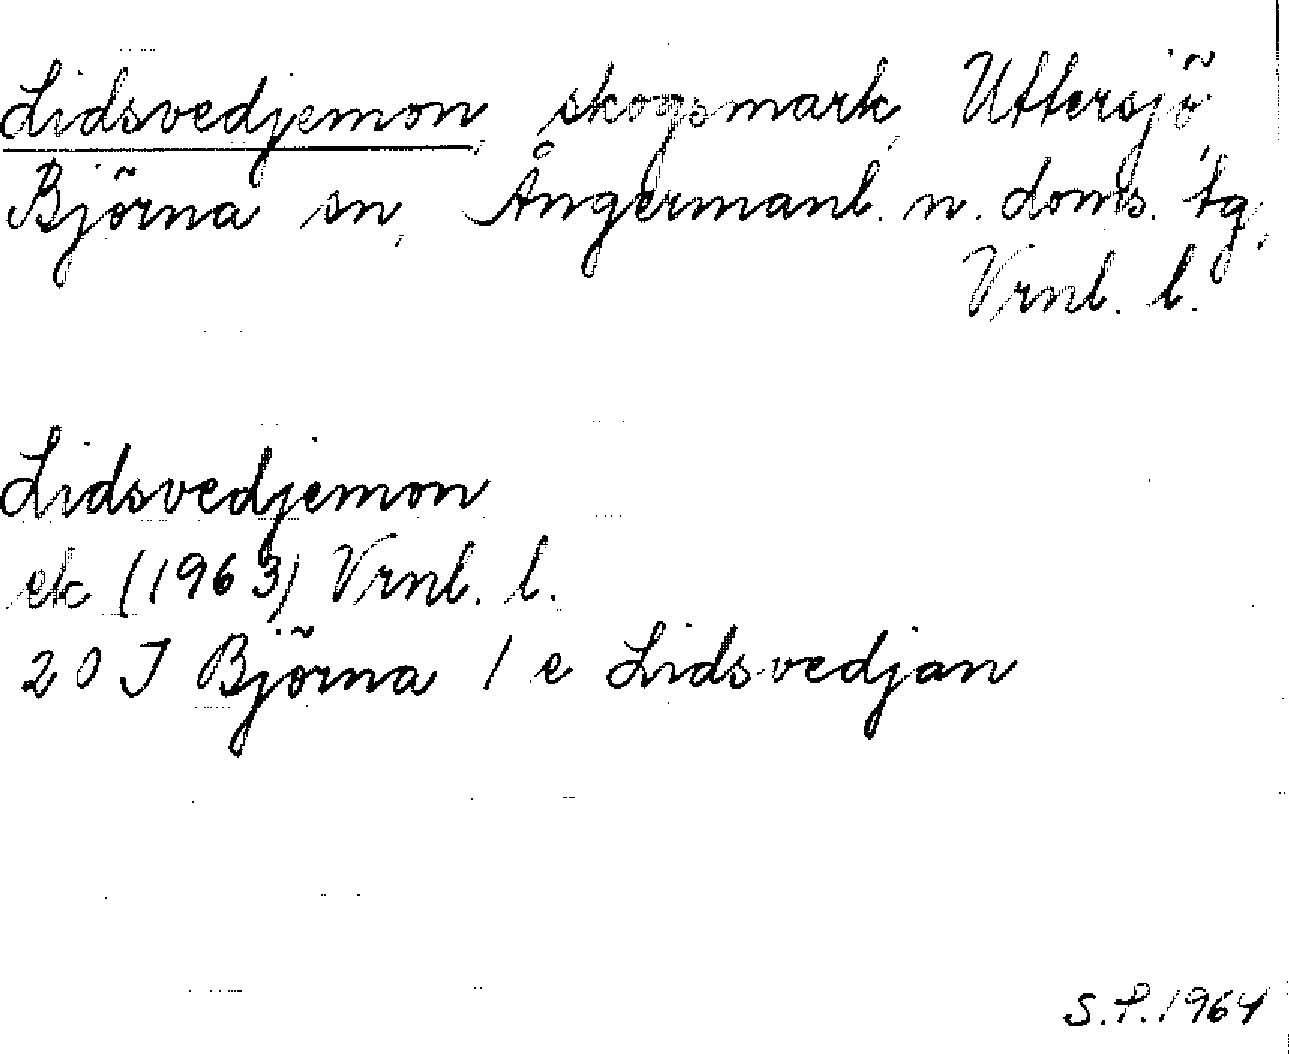 Lidsvedjemon, skogsmark, Uttersjö,
Björna sn, Ångermanl. n. doms. tg,
Vrnl. l.
Lidsvedjemon
ek (1963) Vrnl. l.
20 J Björna 1 e Lidsvedjan
S.P.1964